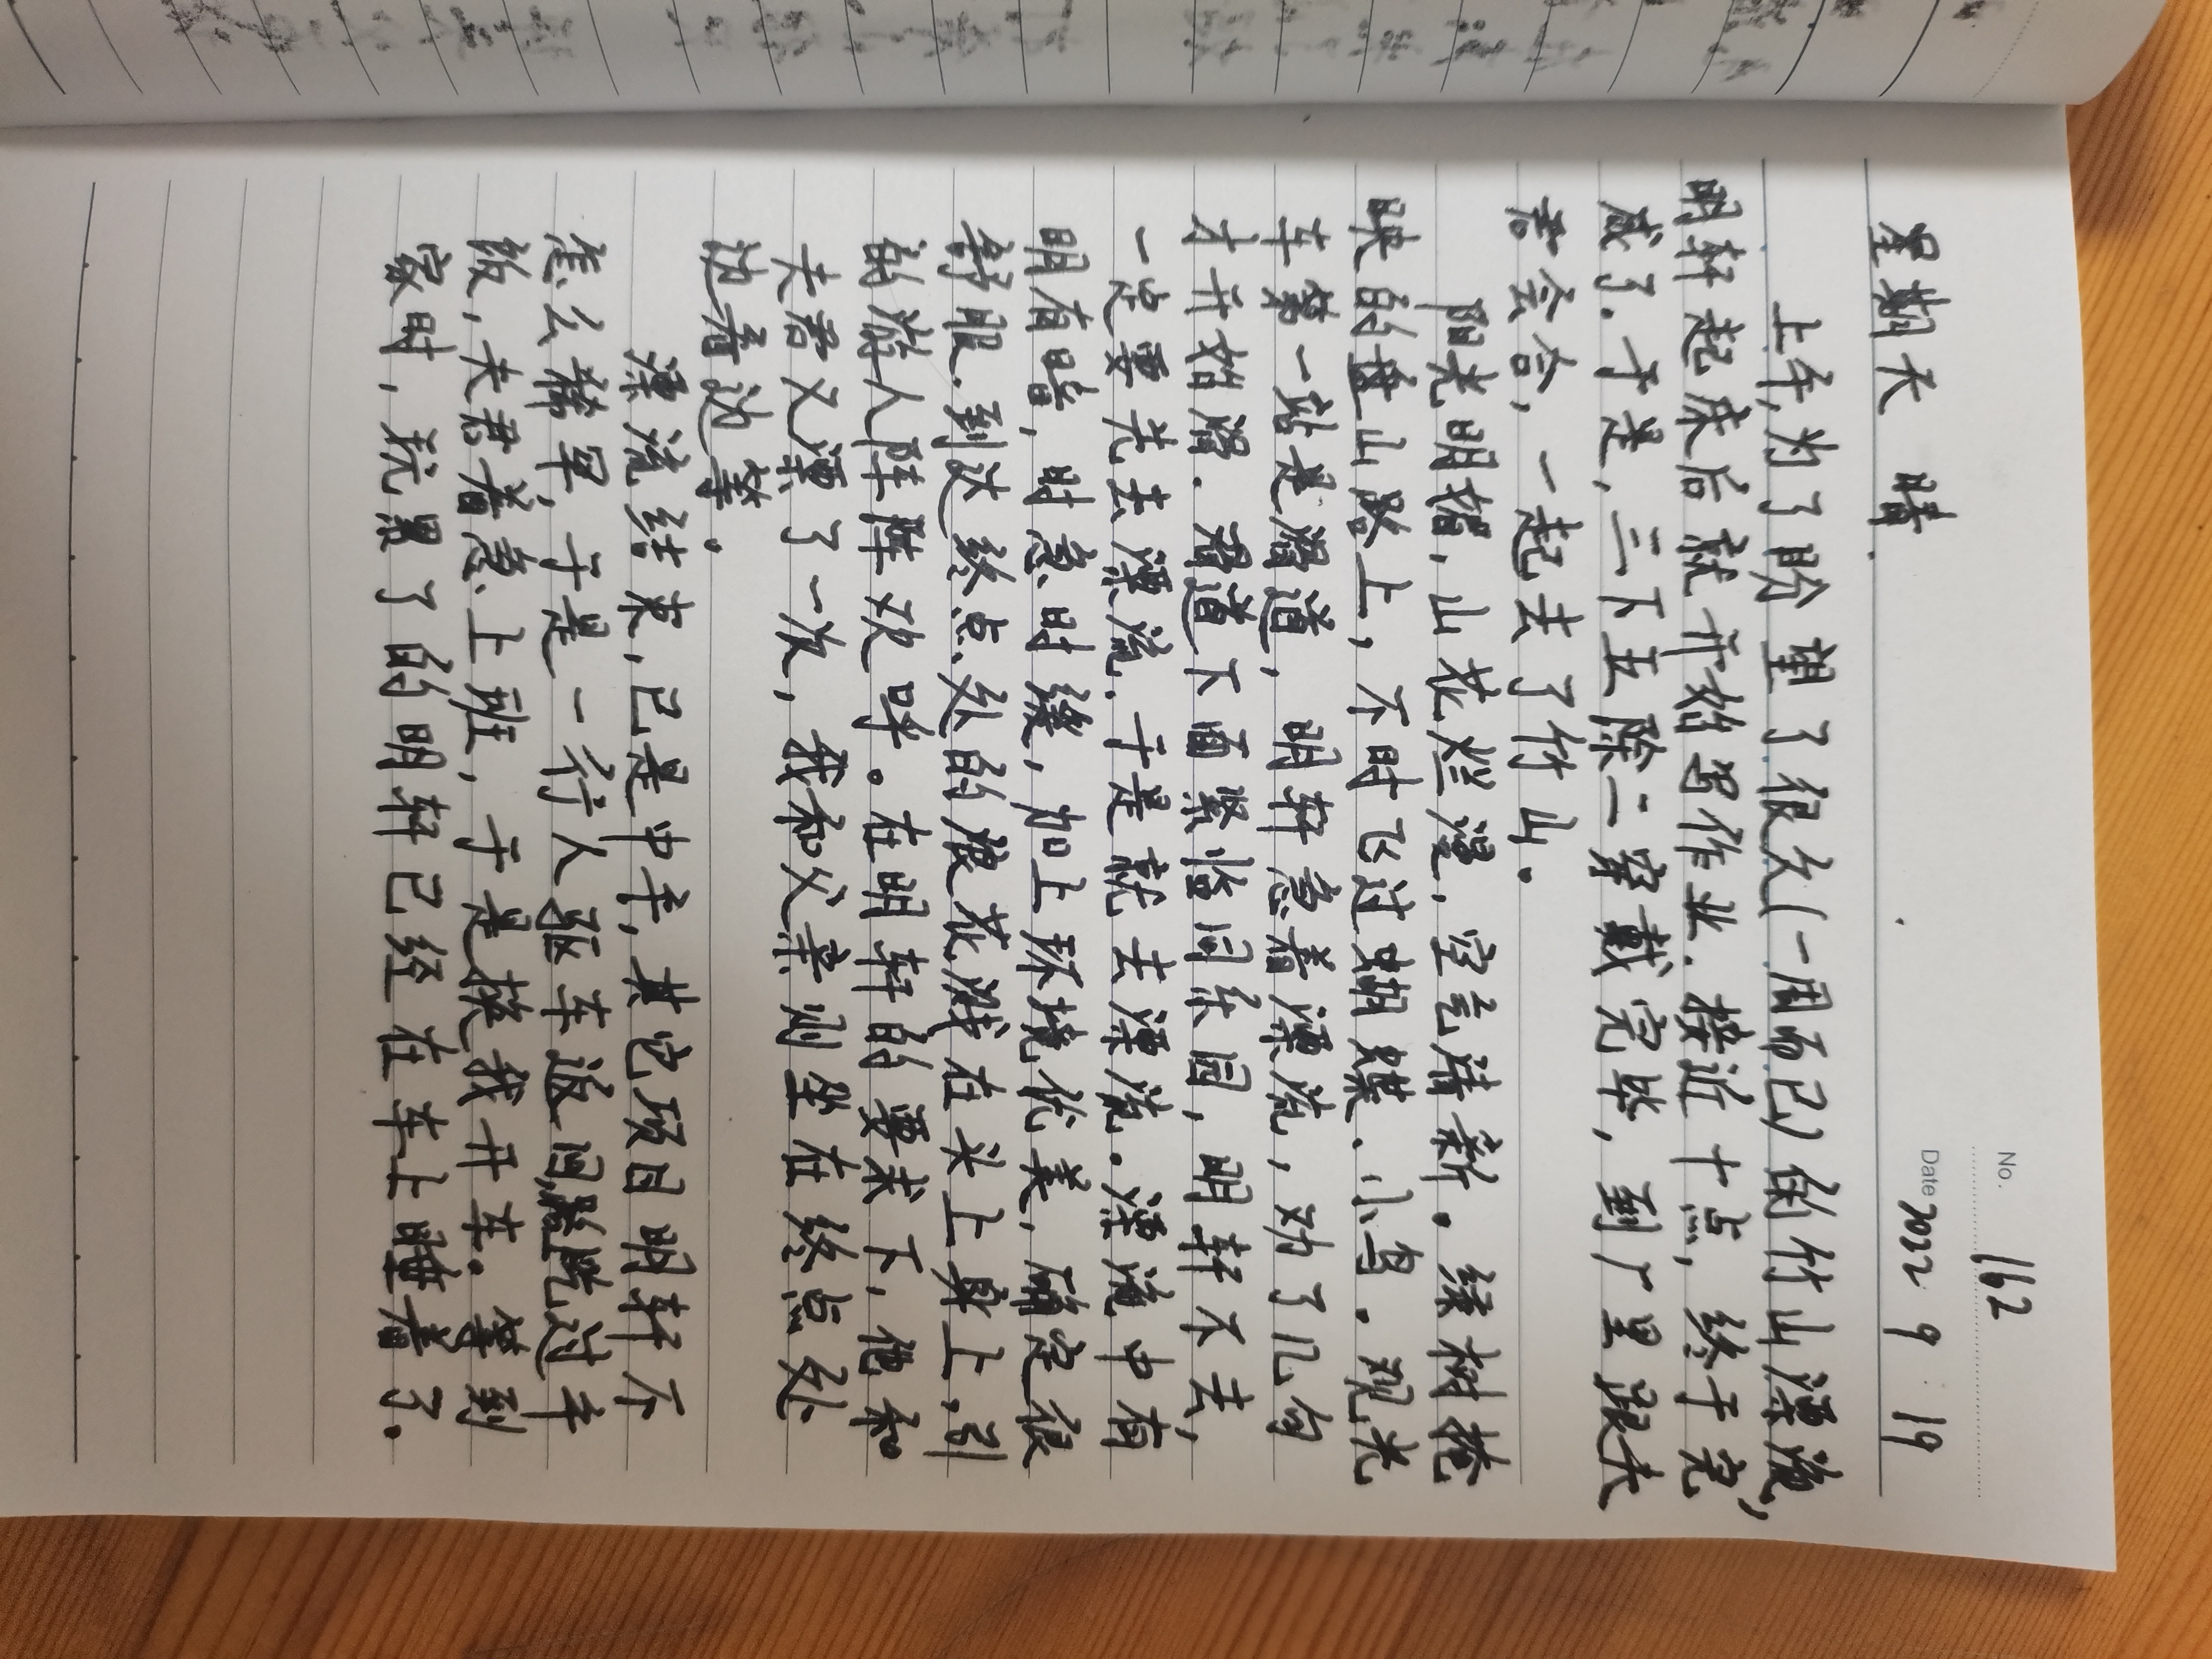 No. 162
Date 2022 . 9 . 19
星期天 晴.
上午，为了盼望了很久(一周而已)的竹山漂流，
明轩起床后就开始写作业.接近十点，终于完
成了.于是，三下五除二穿戴完毕，到厂里跟夫
君会合，一起去了竹山。
阳光明媚，山花烂漫，空气清新。绿树掩
映的盘山路上，不时飞过蝴蝶、小鸟.观光
车第一站是滑道，明轩急着漂流，劝了几句
才开始滑.滑道下面紧临问茶园，明轩不去，
一定要先去漂流.于是就去漂流.漂流中有
明有暗，时急时缓，加上环境优美，确定很
舒服.到达终点处的浪花溅在头上身上，引
的游人阵阵欢呼。在明轩的要求下，他和
夫君又漂了一次，我和父亲则坐在终点处
边看边等。
漂流结束，已是中午，其它项目明轩不
怎么稀罕，于是一行人驱车返回，吃过午
饭，夫君着急上班，于是换我开车。等到
家时，玩累了的明轩已经在车上睡着了.